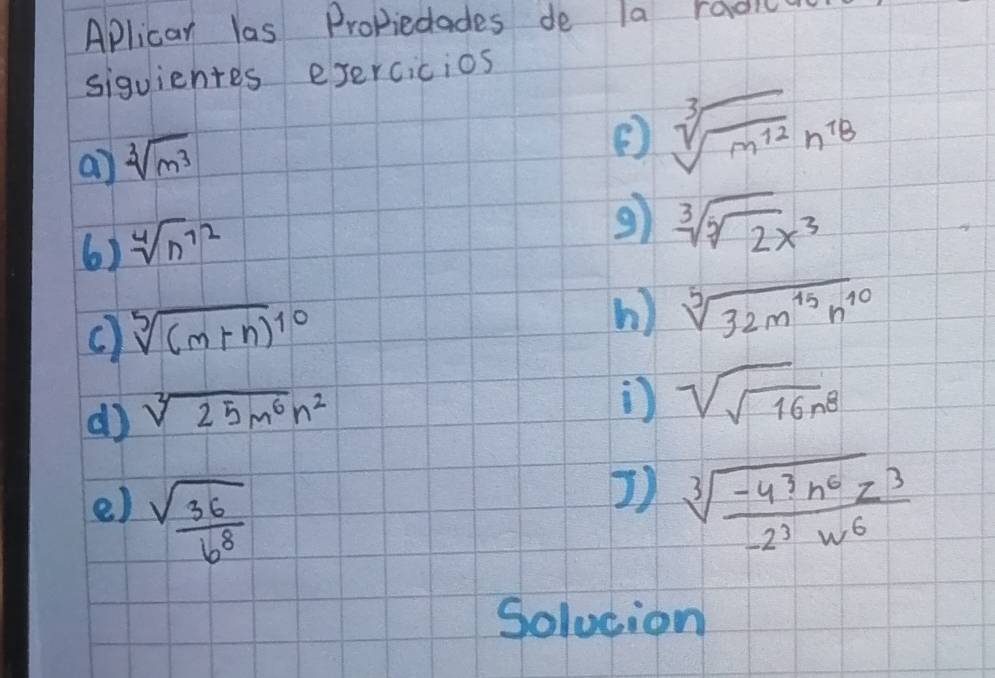 Aplicar las Propiedades de la
siguientes ejercicios
a) ∛m³
b) ∜n¹²
c) ⁵√(m+n)¹⁰
d) ∛25m⁶n²
e) √36/b⁸
f) ∛√m¹² n¹⁸
g) ∛ √2x³
h) ⁵√32m¹⁵n¹⁰
i) √√16n⁸
J) ∛-4³n⁶z³/-2³w⁶
Solucion